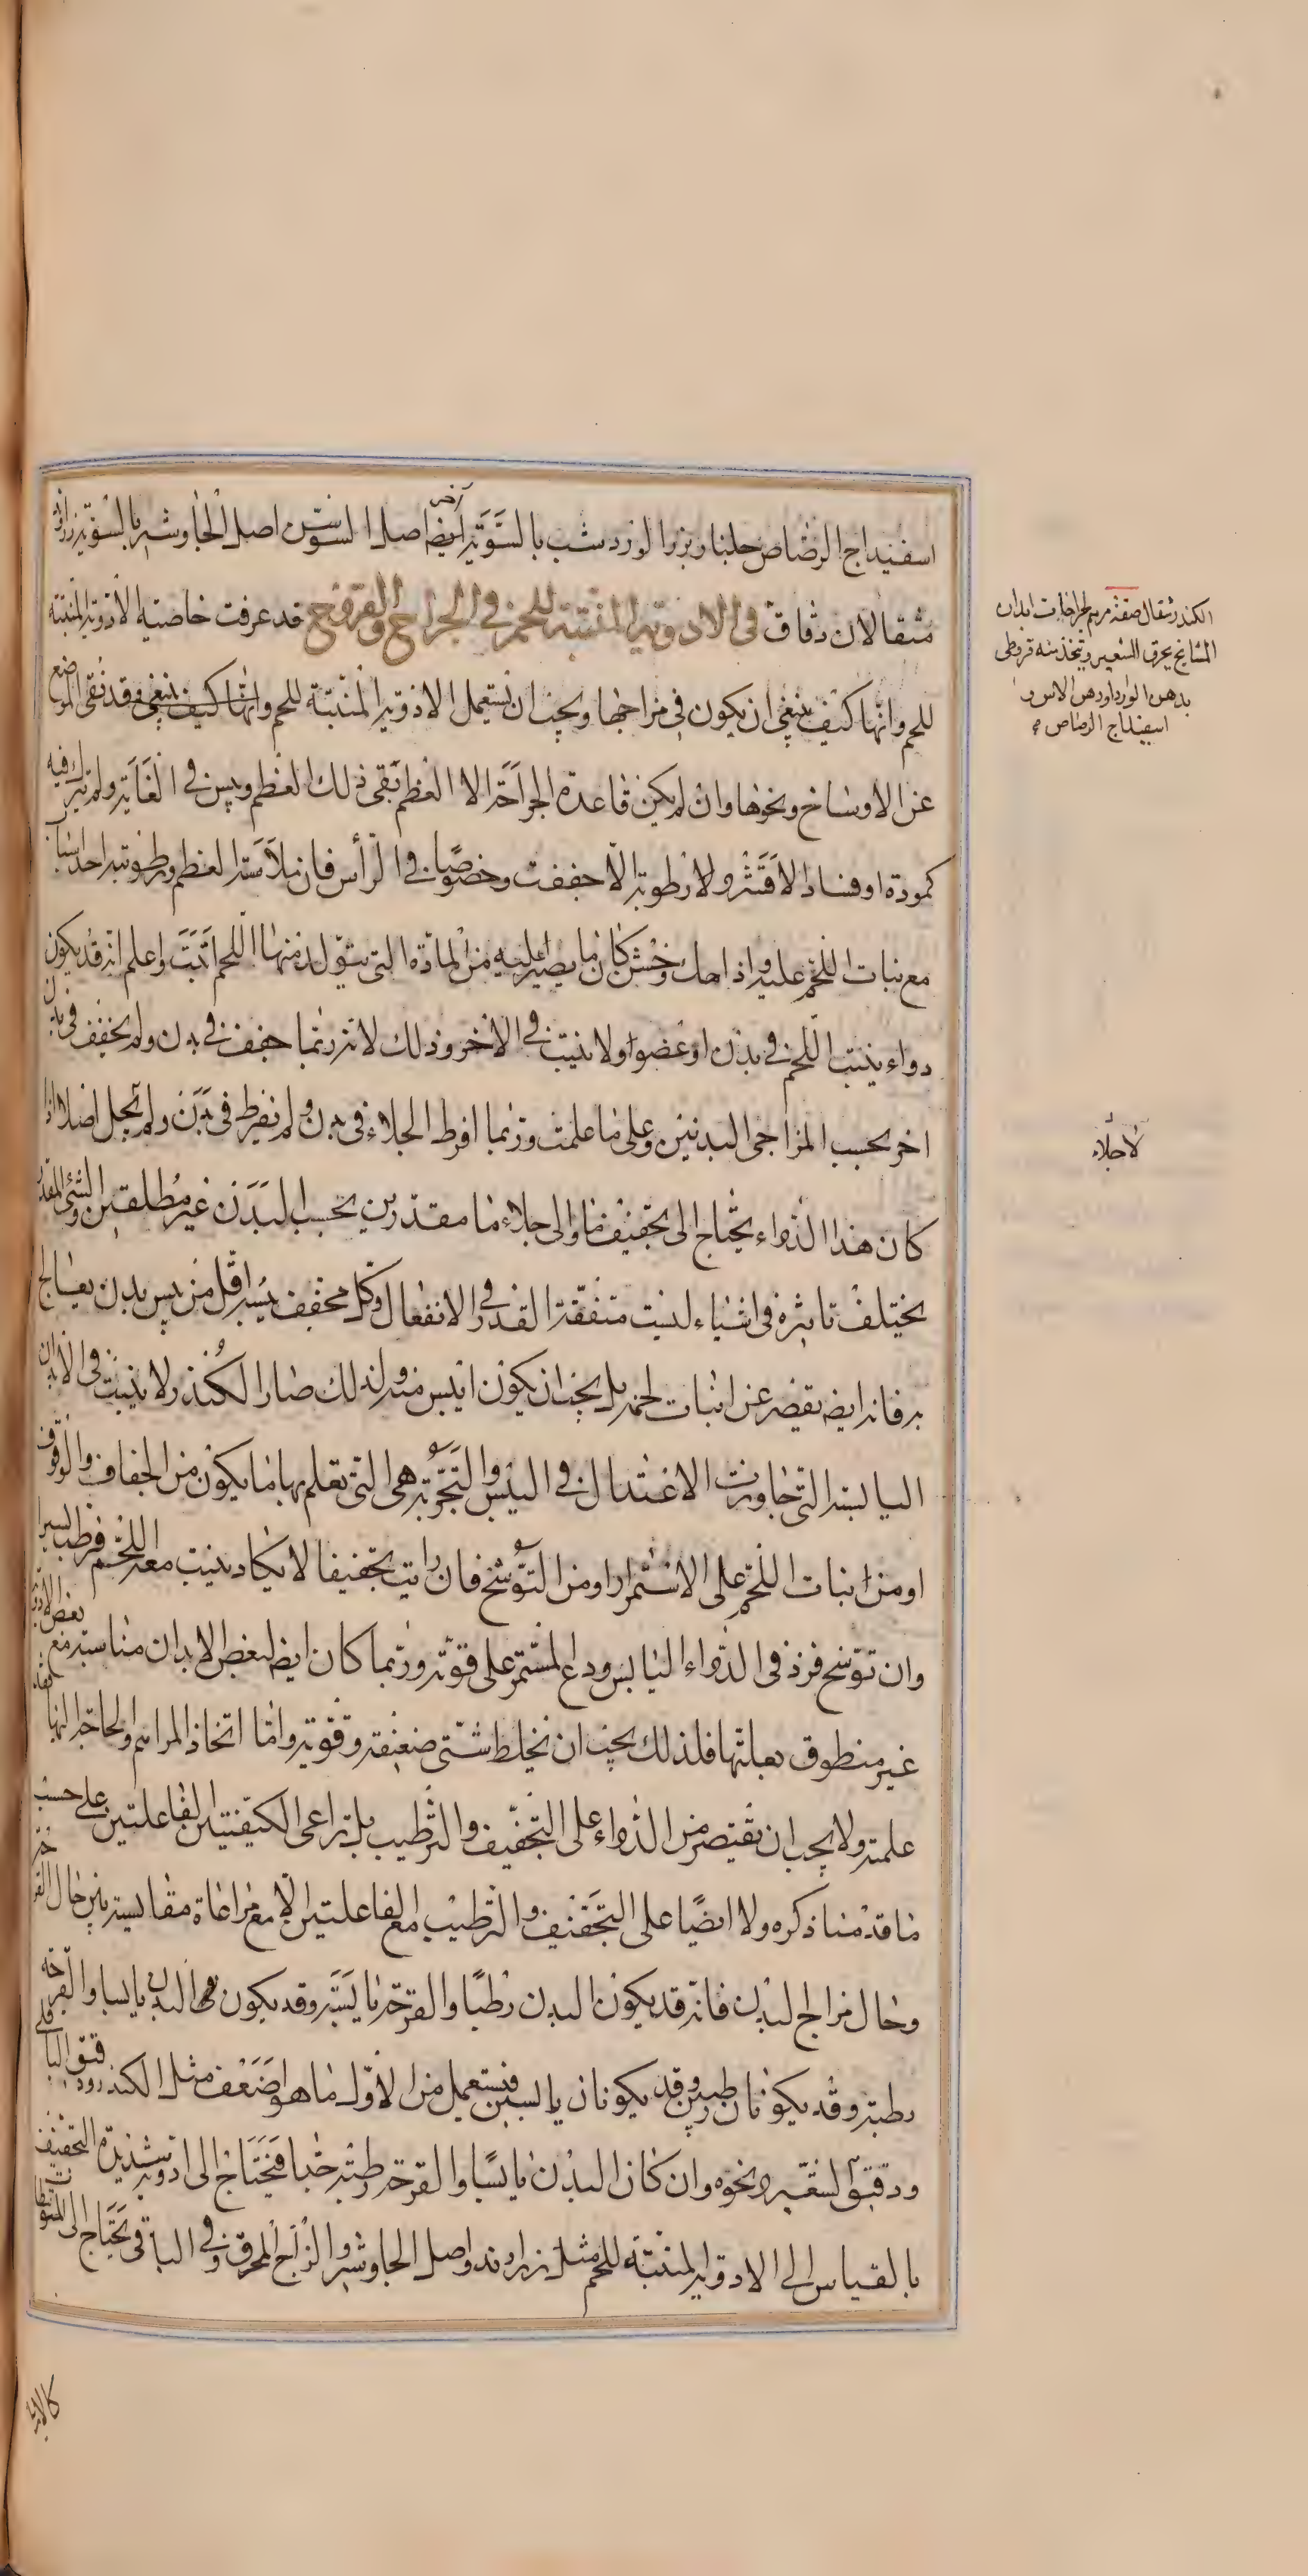 اسفيداج الرصاص جلنار بزر الورد شب بالسوية ايضا آخر اصل السوسن اصل الجاوشير بالسوية زراوند
مثقالان دقاق في الادوية المنبتة للحم في الجراح والقروح قد عرفت خاصية الادوية المنبتة
للحم وانها كيف ينبغي ان يكون في مزاجها ويجب ان تستعمل الادوية المنبتة للحم وانها كيف ينبغي وقد نقى الموضع
عن الاوساخ ونحوها وان لم يكن قاعدة الجراحة الا العظم نقى ذلك العظم ويبس في الغاية ولم تترك فيه
كمودة او فسادا الا قشر ولا رطوبة الا جففت وخصوصا في الرأس فان ملامسة العظم ورطوبته احد اسباب
مع نبات اللحم عليه واذا حك وخشن كان ما يصير اليه من المادة التي يتولد منها اللحم اثبت واعلم انه قد يكون
دواء ينبت اللحم في بدن او عضو ولا ينبت في الآخر وذلك لانه ربما جفف في بدن ولم يخفف في بدن
اخر بحسب المزاجي البدنين وعلى ما علمت وربما افرط الجلاء في بدن ولم يفرط في بدن ولم يجل اصلا اذا
كان هذا الدواء يحتاج الى تجفيف ما والى جلاء ما مقدرين بحسب البدن غير مطلقين والشئ المقدر
يختلف تاثيره في اشياء ليست متفقة القدر في الانفعال وكل مجفف يبسه اقل من يبس بدن يعالج
به فانه ايضا يقصر عن انبات لحمه بل يجب ان يكون ايبس منه ولذلك صار الكندر لا ينبت في الابدان
اليابسة التي جاوزت الاعتدال في اليبس والتجربة هي التي تعلم بها ما يكون من الجفاف والوقوف
او من انبات اللحم على الاستمرار او من التوسخ فان رايت تجفيفا لا يكاد ينبت معه اللحم فرطب يسيرا
وان توسخ فزد في الدواء اليابس ودع المستمر على قوته وربما كان ايضا لبعض الابدان مناسبة مع بعض الادوية
غير منطوق بعلتها فلذلك يجب ان تخلط شتى ضعيفة وقوية واما اتخاذ المراهم والحاجة اليها كما
علمته ولا يجب ان يقتصر من الدواء على التجفيف والترطيب بل تراعى الكيفيتين الفاعلتين على حسب
ما قدمنا ذكره ولا ايضا على التجفيف والترطيب مع الفاعلتين الا مع مراعاة مقايسة بين حال القرحة
وحال مزاج البدن فانه قد يكون البدن رطبا والقرحة يابسة وقد يكون البدن يابسا والقرحة
رطبة وقد يكونان رطبين وقد يكونان يابسين فيستعمل من الاول ما هو اضعف مثل الكندر ودقيق الباقلى
ودقيق الشعير ونحوه وان كان البدن يابسا والقرحة رطبة جدا فيحتاج الى ادوية شديدة التجفيف
بالقياس الى الادوية المنبتة للحم مثل زراوند واصل الجاوشير والزاج المحرق وفي الباقي يحتاج الى المتوسطات
الكندر مثقال صفة مرهم لجراحات ابدان
المشايخ يحرق الشعير ويتخذ منه قروطى
بدهن الورد او دهن الآس و
اسفيداج الرصاص
لاجلاء